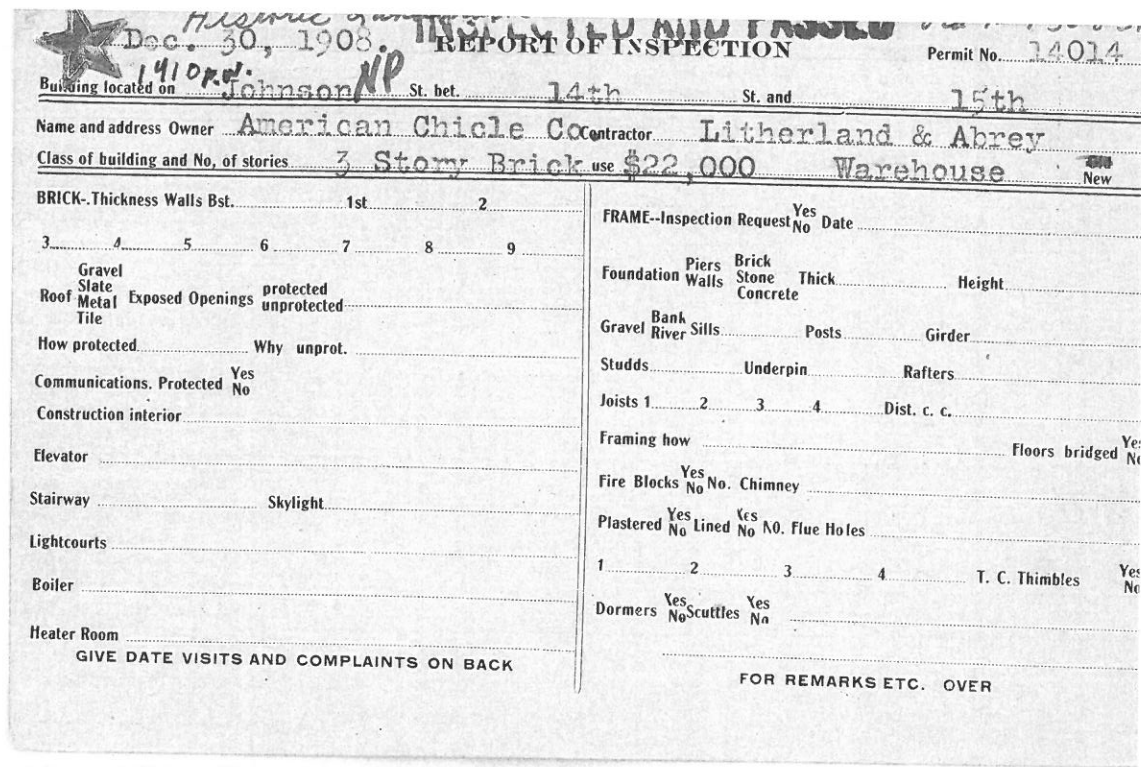 Historic
INSPECTED AND PASSED
Dec. 30, 1908. REPORT OF INSPECTION Permit No. 14014
1410 N.W.
Building located on Johnson NP St. bet. 14th St. and 15th
Name and address Owner American Chicle Co Contractor Litherland & Abrey
Class of building and No, of stories 3 Story Brick use $22,000 Warehouse New
BRICK-.Thickness Walls Bst. 1st 2
3 4 5 6 7 8 9
Roof Gravel Slate Metal Tile Exposed Openings protected unprotected
How protected Why unprot.
Communications. Protected Yes No
Construction interior
Elevator
Stairway Skylight
Lightcourts
Boiler
Heater Room
GIVE DATE VISITS AND COMPLAINTS ON BACK
FRAME--Inspection Request Yes No Date
Foundation Piers Walls Brick Stone Concrete Thick Height
Gravel Bank River Sills Posts Girder
Studs Underpin Rafters
Joists 1 2 3 4 Dist. c. c.
Framing how Floors bridged Yes No
Fire Blocks Yes No No. Chimney
Plastered Yes No Lined Yes No NO. Flue Holes
1 2 3 4 T. C. Thimbles Yes No
Dormers Yes No Scuttles Yes No
FOR REMARKS ETC. OVER